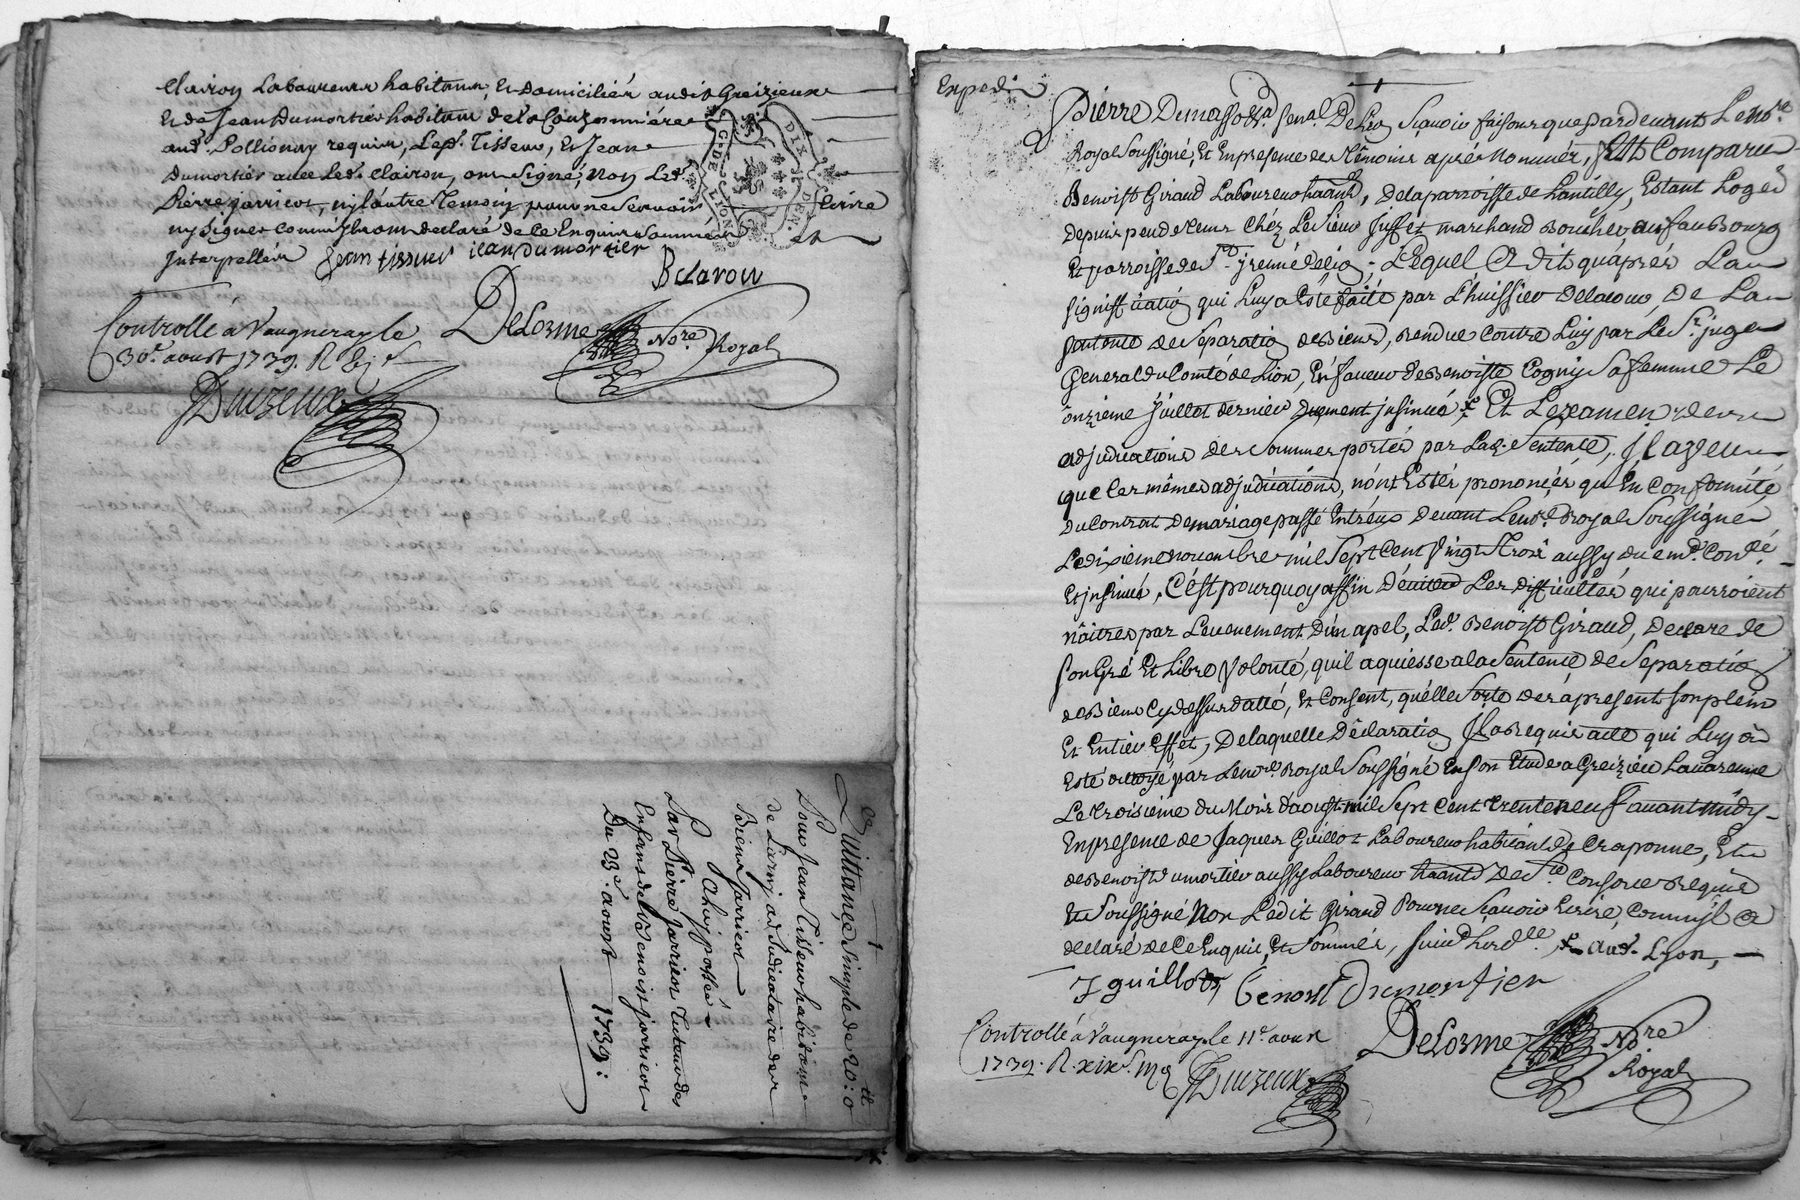 Clairon Laboureurs habitans, et domiciliés audit Greizieux
et de Jean Dumortier habitant de la
aud. Pollionay requis, Led. Tisseur, et Jean
Dumortier avec Led. Clairon, ont signé, non Led.
Pierre jarricot, ny l'autre Temoin pour ne Scavoir Ecrire
ny signer comm'ils ont declaré de ce Enquis et sommés et
Interpellés Jean tisseur jean Dumortier
B Clairon
G. DE LYON
DIX DEN.
Controllé a Vaugneray le
30e. aoust 1739. R
Delorme Nore. Royal
Duizeux
1
Quittance Simple de 20 tt: 0
Pour Jean Tisseur habitant
de Larny adjudicataire des
Biens jarricot
passée
Par Sr. Pierre jarricot Tuteur des
Enfans de Benoist jarricot
Du 23e. aoust 1739:
Expedié
Pierre Dumas senal. De Lion Scavoir faisons que pardevant Le Nore.
Royal Soussigné, Et En presence des Témoins aprés Nommés, Est Comparu
Benoist Giraud Laboureur habitant, de la parroisse de Lantilly, Estant Logé
Depuis peu de Jours chéz Le Sieur marchand Boucher au fauBourg
Et parroisse de St. jrenné de Lion; Lequel a dit qu'aprés La
signiffication qui Luy a Esté faite par L'huissier Delacour, De La
sentence de Separation de Biens, rendue contre Luy par Le Sr. juge
General du Comté de Lion, En faveur de Benoiste Cogny Sa femme Le
onzieme juillet dernier Duement jnsinué, Et L'examen des
adjudications des Sommes portés par Lad. Sentence, jl a veu
que les mêmes adjudications, n'ont Estés prononcés qu'En Conformité
du Contrat De mariage passé Entréux Devant Le nore. Royal Soussigné
Le dixieme novembre mil Sept Cent vingt trois aussy duemt. Conlé.
Et jnsinué, C'est pourquoy affin D'éviter Les difficultés qui pourroient
nàitres par L'evenement D'un apel, Led. Benoist Giraud, Declare de
son Gré Et Libre Volonté, qu'il aquiesse a la Sentence de Separation
de Biens Cy dessus datté, Et Consent, qu'elle Sorte des à present son plein
Et Entier Effet, De laquelle Déclaration jl a Requis acte qui Luy a
Esté octroyé par Le nore. Royal Soussigné En son Etude a Greizieu Lavarenne
Le troisieme du Mois d'aoust mil Sept Cent trente neuf avant midy
En presence de Jaques Guillot Laboureur habitant de Craponne, Et
de Benoist Dumortier aussy Laboureur habitant De Ste. Consorce Requis
Et Soussigné Non Ledit Giraud Pour ne Scavoir Ecrire, Comm'jl a
declaré de Ce Enquis, Et Sommés, aud. Lyon,
J guillot benoist Dumortier
Controllé a Vaugneray le 11e. aoust
1739. R. xix s.
Duizeux
Delorme Nore
Royal